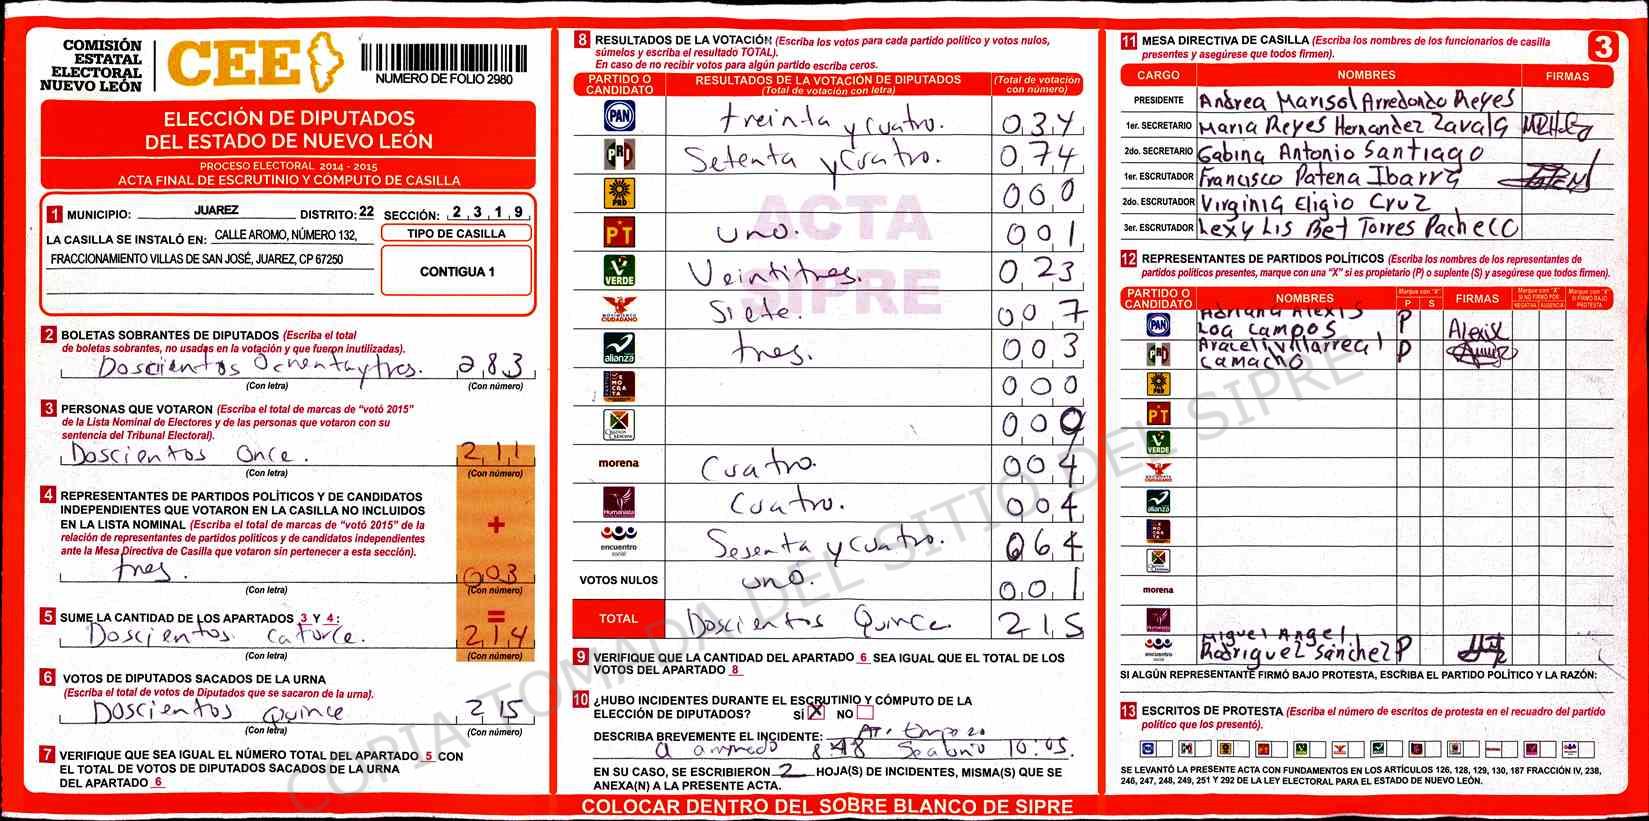 COMISIÓN
ESTATAL
ELECTORAL
NUEVO LEÓN
CEE
NUMERO DE FOLIO 2980
ELECCIÓN DE DIPUTADOS
DEL ESTADO DE NUEVO LEÓN
PROCESO ELECTORAL 2014 - 2015
ACTA FINAL DE ESCRUTINIO Y CÓMPUTO DE CASILLA
1 MUNICIPIO: JUAREZ DISTRITO: 22 SECCIÓN: 2 3 1 9
LA CASILLA SE INSTALÓ EN: CALLE AROMO, NÚMERO 132,
FRACCIONAMIENTO VILLAS DE SAN JOSÉ, JUAREZ, CP 67250
TIPO DE CASILLA
CONTIGUA 1
2 BOLETAS SOBRANTES DE DIPUTADOS (Escriba el total
de boletas sobrantes, no usadas en la votación y que fueron inutilizadas).
Doscientos Ochenta y tres. 283
(Con letra) (Con número)
3 PERSONAS QUE VOTARON (Escriba el total de marcas de "votó 2015"
de la Lista Nominal de Electores y de las personas que votaron con su
sentencia del Tribunal Electoral).
Doscientos Once. 211
(Con letra) (Con número)
4 REPRESENTANTES DE PARTIDOS POLÍTICOS Y DE CANDIDATOS
INDEPENDIENTES QUE VOTARON EN LA CASILLA NO INCLUIDOS
EN LA LISTA NOMINAL (Escriba el total de marcas de "votó 2015" de la
relación de representantes de partidos políticos y de candidatos independientes
ante la Mesa Directiva de Casilla que votaron sin pertenecer a esta sección).
+
tres. 003
(Con letra) (Con número)
=
5 SUME LA CANTIDAD DE LOS APARTADOS 3 Y 4:
Doscientos catorce. 214
(Con letra) (Con número)
6 VOTOS DE DIPUTADOS SACADOS DE LA URNA
(Escriba el total de votos de Diputados que se sacaron de la urna).
Doscientos Quince 215
(Con letra) (Con número)
7 VERIFIQUE QUE SEA IGUAL EL NÚMERO TOTAL DEL APARTADO 5 CON
EL TOTAL DE VOTOS DE DIPUTADOS SACADOS DE LA URNA
DEL APARTADO 6
8 RESULTADOS DE LA VOTACIÓN (Escriba los votos para cada partido político y votos nulos,
súmelos y escriba el resultado TOTAL).
En caso de no recibir votos para algún partido escriba ceros.
PARTIDO O CANDIDATO RESULTADOS DE LA VOTACIÓN DE DIPUTADOS (Total de votación con letra) (Total de votación con número)
PAN treinta y cuatro. 034
PRI Setenta y cuatro. 074
PRD 000
PT uno. 001
VERDE Veintitres. 023
MOVIMIENTO CIUDADANO Siete. 007
alianza tres. 003
DEMOCRATA 000
000
morena Cuatro. 004
Humanista Cuatro. 004
encuentro social Sesenta y cuatro. 064
VOTOS NULOS uno. 001
TOTAL Doscientos Quince. 215
ACTA
SIPRE
9 VERIFIQUE QUE LA CANTIDAD DEL APARTADO 6 SEA IGUAL QUE EL TOTAL DE LOS
VOTOS DEL APARTADO 8
10 ¿HUBO INCIDENTES DURANTE EL ESCRUTINIO Y CÓMPUTO DE LA
ELECCIÓN DE DIPUTADOS? SÍ X NO
DESCRIBA BREVEMENTE EL INCIDENTE:
8:48 10:05.
EN SU CASO, SE ESCRIBIERON 2 HOJA(S) DE INCIDENTES, MISMA(S) QUE SE
ANEXA(N) A LA PRESENTE ACTA.
COLOCAR DENTRO DEL SOBRE BLANCO DE SIPRE
3
11 MESA DIRECTIVA DE CASILLA (Escriba los nombres de los funcionarios de casilla
presentes y asegúrese que todos firmen).
CARGO NOMBRES FIRMAS
PRESIDENTE Andrea Marisol Arredondo Reyes
1er. SECRETARIO Maria Reyes Hernandez Zavala
2do. SECRETARIO Gabina Antonio Santiago
1er. ESCRUTADOR Francisco Patena Ibarra
2do. ESCRUTADOR Virginia Eligio Cruz
3er. ESCRUTADOR Lexy Lis Bet Torres Pacheco
12 REPRESENTANTES DE PARTIDOS POLÍTICOS (Escriba los nombres de los representantes de
partidos políticos presentes, marque con una "X" si es propietario (P) o suplente (S) y asegúrese que todos firmen).
PARTIDO O CANDIDATO NOMBRES Marque con "X" P S FIRMAS Marque con "X" SI NO FIRMÓ POR: NEGATIVA AUSENCIA Marque con "X" SI FIRMÓ BAJO PROTESTA
PAN Adriana Alexis P
Loa Campos Alexix
PRI Araceli Villarreal P
Camacho
PRD
PT
VERDE
alianza
morena
Humanista
encuentro social Miguel Angel
Rodriguez Sánchez P
SI ALGÚN REPRESENTANTE FIRMÓ BAJO PROTESTA, ESCRIBA EL PARTIDO POLÍTICO Y LA RAZÓN:
13 ESCRITOS DE PROTESTA (Escriba el número de escritos de protesta en el recuadro del partido
político que los presentó).
SE LEVANTÓ LA PRESENTE ACTA CON FUNDAMENTOS EN LOS ARTÍCULOS 126, 128, 129, 130, 187 FRACCIÓN IV, 238,
246, 247, 248, 249, 251 Y 292 DE LA LEY ELECTORAL PARA EL ESTADO DE NUEVO LEÓN.
COPIA TOMADA DEL SITIO DEL SIPRE